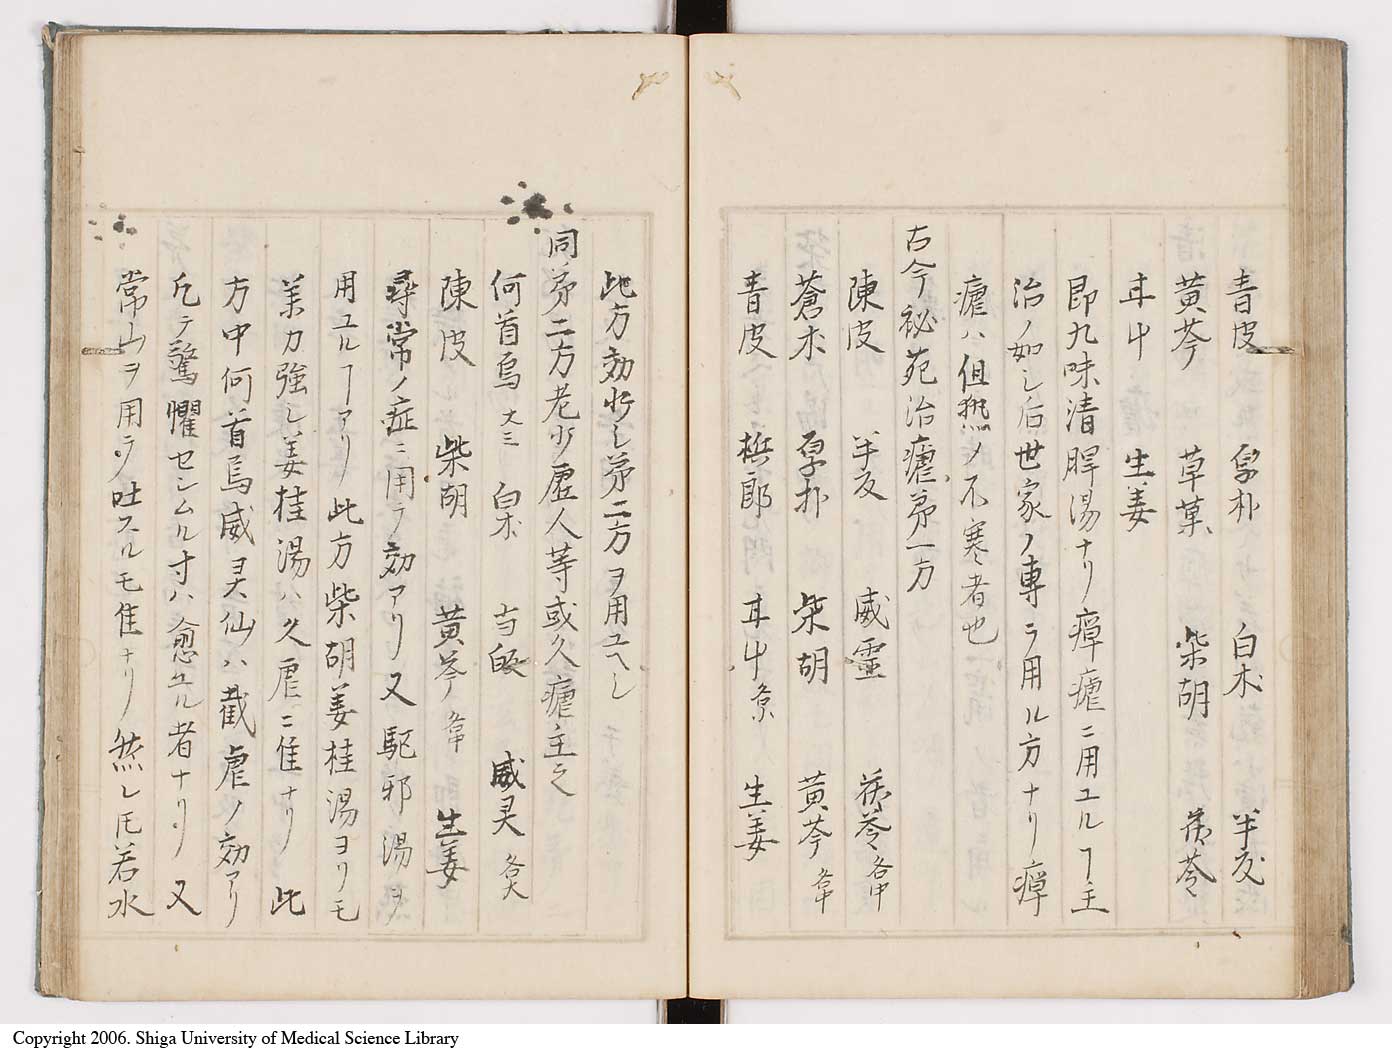 青皮 厚朴 白朮 半夏
黄芩 草菓 柴胡 茯苓
甘艸 生姜
即九味清脾湯ナリ瘴瘧ニ用ユルヿ主
治ノ如シ后世家ノ専ラ用ル方ナリ瘴
瘧ハ但熱ノ不寒者也
古今祕苑治瘧苐一方
陳皮 半夏 威靈 茯苓各中
蒼朮 厚朴 柴胡 黄芩各
青皮 梹郎 甘艸各 生姜
此方効少シ苐二方ヲ用ユヘシ
同苐二方老少虚人等或久瘧主之
何首烏大三 白朮 当皈 威灵各大
陳皮 柴胡 黄芩各 生姜
尋常ノ症ニ用ラ効アリ又駆邪湯ヲ
用ユルヿアリ此方柴胡姜桂湯ヨリモ
薬力強シ姜桂湯ハ久瘧ニ隹ナリ此
方中何首烏威灵仙ハ截瘧ノ効アリ
凢テ驚懼セシムル寸ハ愈ユル者ナリ又
常山ヲ用ラ吐スルモ隹ナリ然レ圧若水